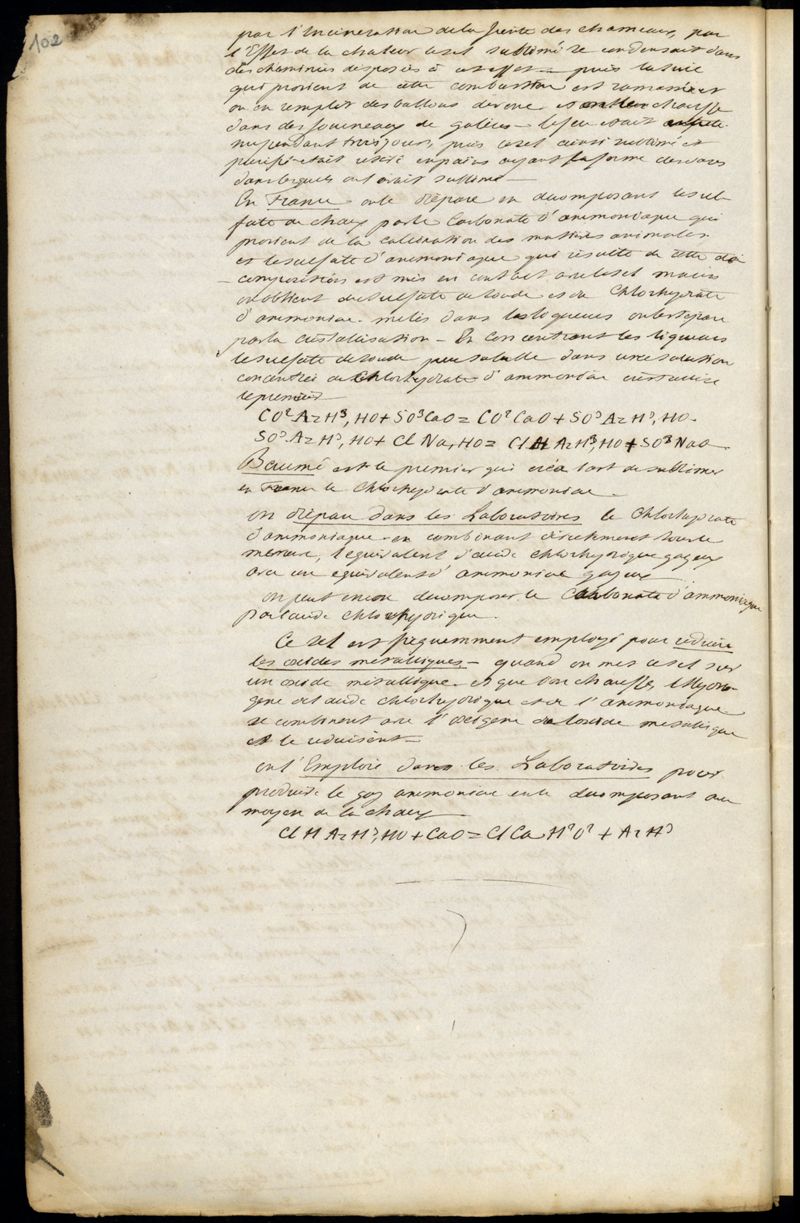 102
par l'Incinération de la fiente des chameaux, par
l'Effet de la chaleur le sel sublimé se condensait dans
des cheminées disposées à cet effet – puis la suie
qui provient de cette combustion est ramassée et
on en remplit des ballons de verre et on les chauffe
dans des fourneaux de galères – le feu était
pendant trois jours, puis le sel ainsi sublimé et
purifié était retiré en pains ayant la forme des vases
dans lesquels on l'avait sublimé –
En France on le prépare en décomposant le sul-
fate de chaux par le Carbonate d'ammoniaque qui
provient de la calcination des matières animales
et le sulfate d'ammoniaque qui résulte de cette dé
– composition est mis en contact avec le sel marin
on obtient du sulfate de soude et du Chlorhydrate
d'ammoniac mêlés dans les liqueurs on les sépare
par la cristallisation – En concentrant les liqueurs
le sulfate de soude peu soluble dans une solution
concentrée de Chlorhydrate d'ammoniac cristallise
le premier –
CO² AzH³, HO + SO³ CaO = CO² CaO + SO³ AzH³, HO.
SO³ AzH³, HO + Cl Na, HO = Cl H AzH³, HO + SO³ NaO –
Baumé est le premier qui créa l'art de sublimer
en France le Chlorhydrate d'ammoniac –
on prépare dans les Laboratoires le Chlorhydrate
d'ammoniaque en combinant directement sous le
mercure, 1 équivalent d'acide chlorhydrique gazeux
avec un équivalent d'ammoniac gazeux
on peut encore décomposer le Carbonate d'ammoniaque
par l'acide chlorhydrique.
Ce sel est fréquemment employé pour réduire
les oxides métalliques – quand on met ce sel sur
un oxide métallique et que l'on chauffe, l'Hydro-
gène de l'acide chlorhydrique et de l'ammoniaque
se combinent avec l'oxigène de l'oxide métallique
et le réduisent –
on l'Emploie dans les Laboratoires pour
produire le gaz ammoniac en le décomposant au
moyen de la chaux
Cl H AzH³, HO + CaO = Cl Ca H²O² + AzH³